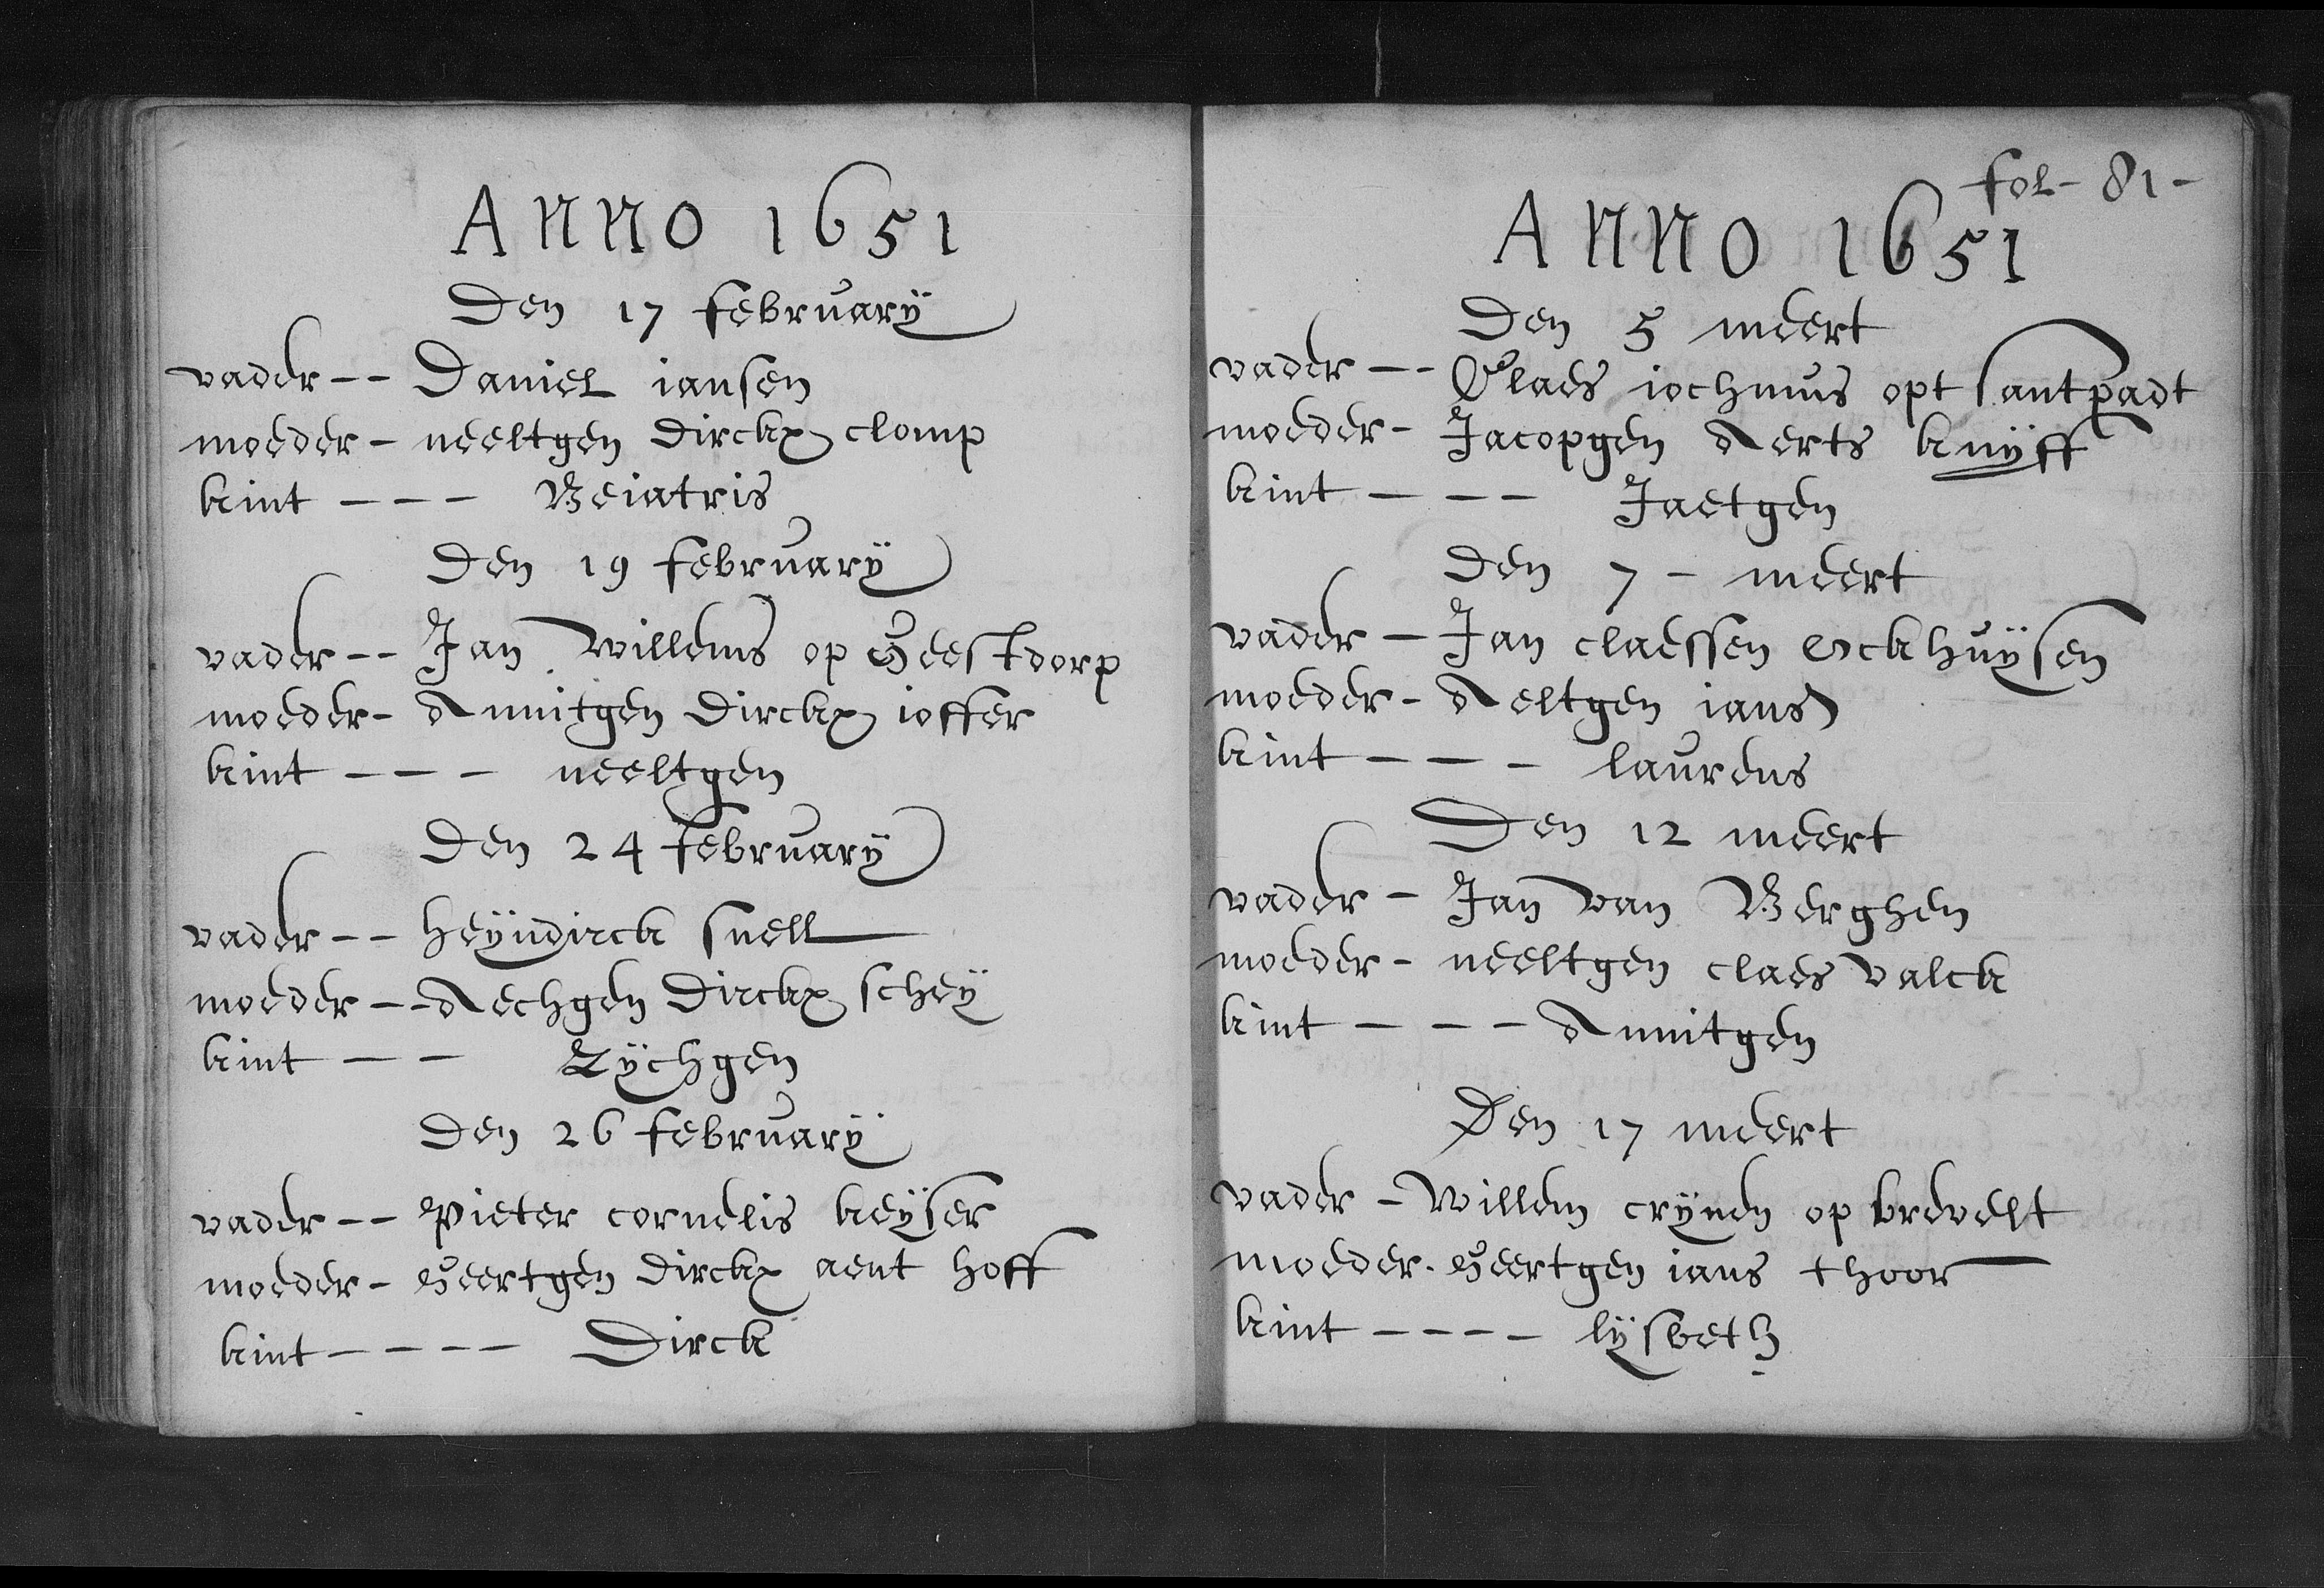 ANNO 1651
Den 17 februarÿ
vader -- Daniel iansen
moeder - neeltgen Dirckx clomp
kint --- Beiatris
Den 19 februarÿ
vader -- Jan Willems op Geestdorp
moeder - Annitgen Dirckx ioffer
kint --- neeltgen
Den 24 februarÿ
vader -- heÿndirck snell
moeder -- Aechgen Dirckx scheÿ
kint -- Lÿchgen
Den 26 februarÿ
vader -- Pieter cornelis keÿser
moeder - Geertgen Dirckx aent hoff
kint ---- Dirck
fol - 81 -
ANNO 1651
Den 5 meert
vader -- Claes iochmus opt santpadt
moeder - Jacopgen Aerts knÿff
kint --- Jaetgen
Den 7 - meert
vader - Jan claessen Ockhuÿsen
moeder - Aeltgen ians
kint --- laurens
Den 12 meert
vader - Jan van Berghen
moeder - neeltgen claes valck
kint --- Annitgen
Den 17 meert
vader - Willem crÿnen op brevelt
moeder - Geertgen ians thoor
kint ---- lÿsbeth